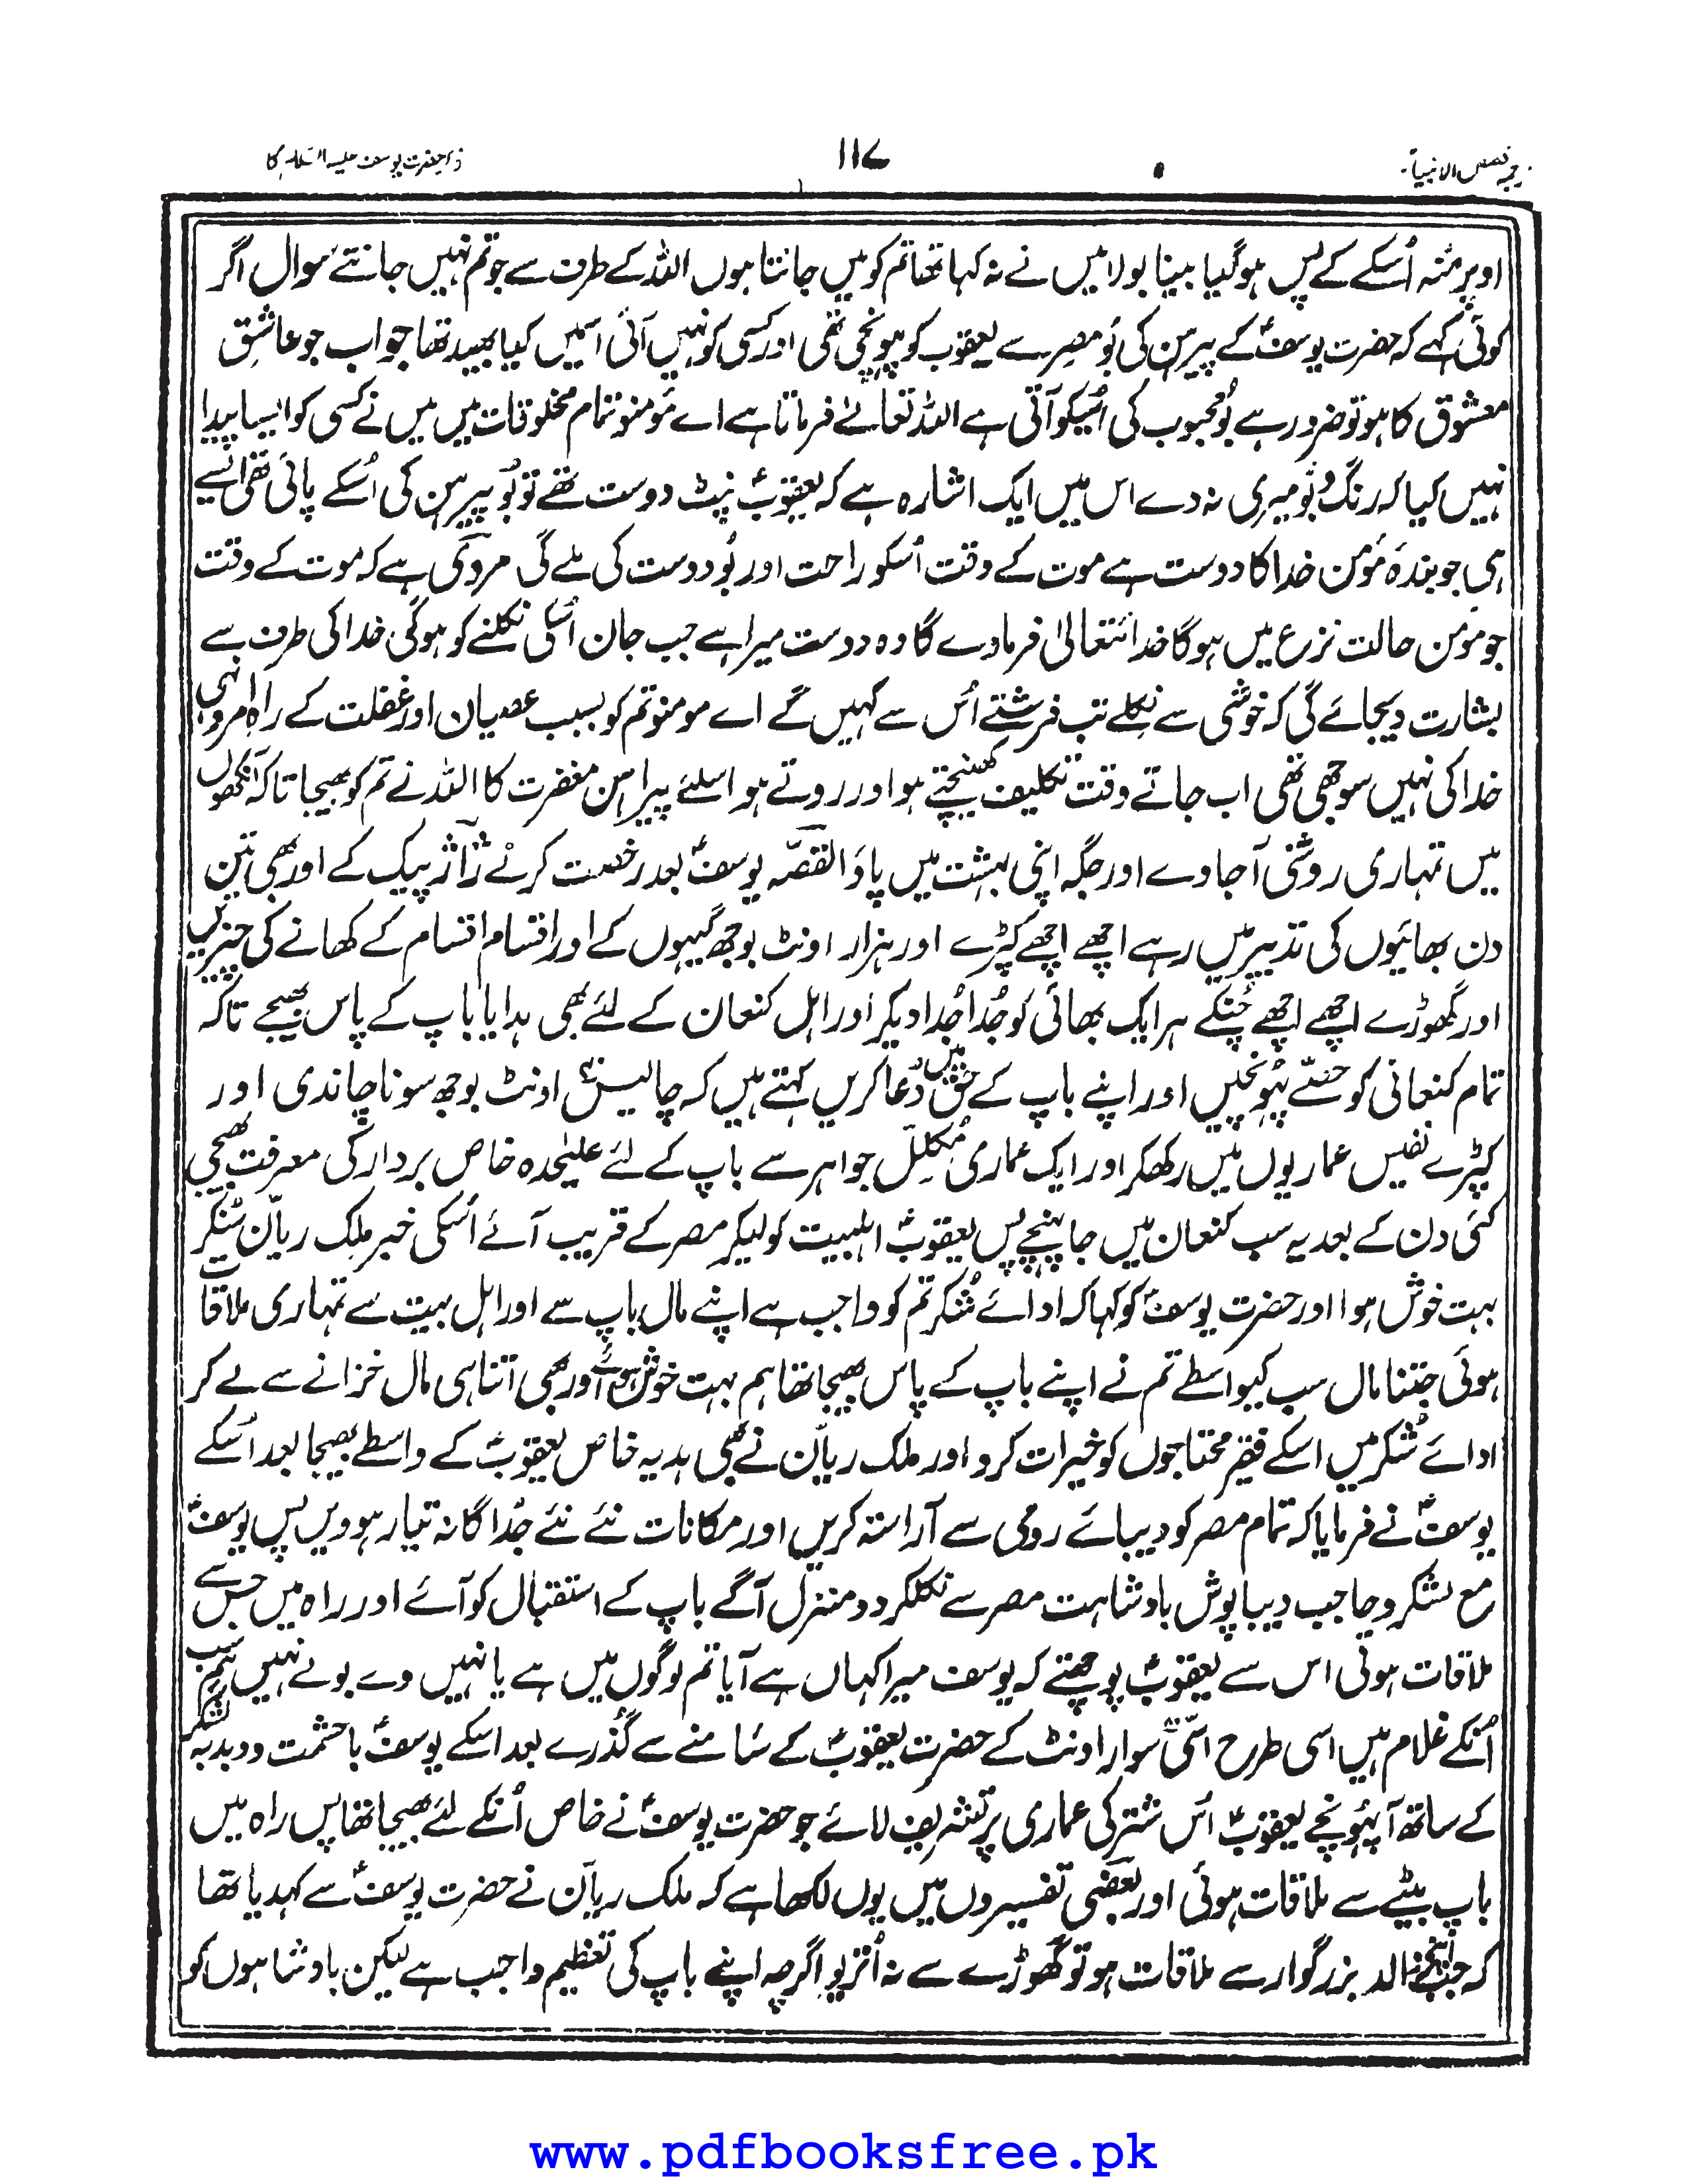 ترجمہ قصص الانبیاء
۱۱۷
ذکر حضرت یوسف علیہ السلام کا
اوپر منہ اُسکے کے پس ہوگیا بینا بولا میں نے نہ کہا تھا تم کو میں جانتا ہوں اللہ کے طرف سے جو تم نہیں جانتے سوال اگر
کوئی کہے کہ حضرت یوسفؑ کے پیرہن کی بُو مصر سے یعقوب کو پہونچی تھی اور کسی کو نہیں آئی اسمیں کیا بھید تھا جواب جو عاشق
معشوق کا ہو تو ضرور ہے بُو محبوب کی اُسیکو آتی ہے اللہ تعالےٰ فرماتا ہے اے مؤمنو تمام مخلوقات میں میں نے کسی کو ایسا پیدا
نہیں کیا کہ رنگ و بُو میری نہ دے اس میں ایک اشارہ ہے کہ یعقوبؑ نپٹ دوست تھے تو بُو پیرہن کی اُسکے پائی تھی ایسے
ہی جو بندۂ مؤمن خدا کا دوست ہے موت کے وقت اُسکو راحت اور بُو دوست کی ملے گی مروی ہے کہ موت کے وقت
جو مؤمن حالت نزع میں ہوگا خدائتعالیٰ فرمادے گا وہ دوست میرا ہے جب جان اُسکی نکلنے کو ہوگی خدا کی طرف سے
بشارت دیجائے گی کہ خوشی سے نکلے تب فرشتے اُس سے کہیں گے اے مومنو تم کو بسبب عصیان اور غفلت کے راہ امر و نہی
خدا کی نہیں سوجھی تھی اب جاتے وقت تکلیف کھینچتے ہو اور روتے ہو اسلئے پیراہن مغفرت کا اللہ نے تم کو بھیجا تاکہ آنکھوں
میں تمہاری روشنی آجاوے اور جگہ اپنی بہشت میں پاؤ القصّہ یوسفؑ بعد رخصت کرنے پیک کے اور بھی تین
دن بھائیوں کی تدبیر میں رہے اچھے اچھے کپڑے اور ہزار اونٹ بوجھ گیہوں کے اور اقسام اقسام کے کھانے کی چیزیں
اور گھوڑے اچھے اچھے چُنکے ہر ایک بھائی کو جُدا جُدا دیکر اور اہل کنعان کے لئے بھی ہدایا باپ کے پاس بھیجے تاکہ
تمام کنعانی کو حصّے پہونچیں اور اپنے باپ کے حق میں دُعا کریں کہتے ہیں کہ چالیس اونٹ بوجھ سونا چاندی اور
کپڑے نفیس عماریوں میں رکھکر اور ایک عماری مُکلّل جواہر سے باپ کے لئے علیٰحدہ خاص بردار کی معرفت بھیجی
کئی دن کے بعد یہ سب کنعان میں جا پہنچے پس یعقوبؑ اہلبیت کو لیکر مصر کے قریب آئے اُسکی خبر ملک ریّان سُنکر
بہت خوش ہوا اور حضرت یوسفؑ کو کہا کہ ادائے شکر تم کو واجب ہے اپنے ماں باپ سے اور اہل بیت سے تمہاری ملاقات
ہوئی جتنا مال سب کیواسطے تم نے اپنے باپ کے پاس بھیجا تھا ہم بہت خوش ہوئے اور بھی اتنا ہی مال خزانے سے لے کر
ادائے شکر میں اسکے فقیر محتاجوں کو خیرات کرو اور ملک ریّان نے بھی ہدیہ خاص یعقوبؑ کے واسطے بھیجا بعد اُسکے
یوسفؑ نے فرمایا کہ تمام مصر کو دیبائے رومی سے آراستہ کریں اور مکانات نئے نئے جُدا گانہ تیار ہوویں پس یوسفؑ
مع لشکر و حاجب دیبا پوش بادشاہت مصر سے نکلکر دو منزل آگے باپ کے استقبال کو آئے اور راہ میں جس سے
ملاقات ہوئی اس سے یعقوبؑ پوچھتے کہ یوسف میرا کہاں ہے آیا تم لوگوں میں ہے یا نہیں وے بولے نہیں ہم سب
اُنکے غلام ہیں اسی طرح اسّی سوار اونٹ کے حضرت یعقوبؑ کے سامنے سے گذرے بعد اسکے یوسفؑ باحشمت و دبدبہ لشکر
کے ساتھ آپہونچے یعقوبؑ اُس شتر کی عماری پر تشریف لائے جو حضرت یوسفؑ نے خاص اُنکے لئے بھیجا تھا پس راہ میں
باپ بیٹے سے ملاقات ہوئی اور بعضی تفسیروں میں یوں لکھا ہے کہ ملک ریّان نے حضرت یوسفؑ سے کہدیا تھا
کہ جب اپنے والد بزرگوار سے ملاقات ہو تو گھوڑے سے نہ اُتریو اگرچہ اپنے باپ کی تعظیم واجب ہے لیکن بادشاہوں کو
www.pdfbooksfree.pk